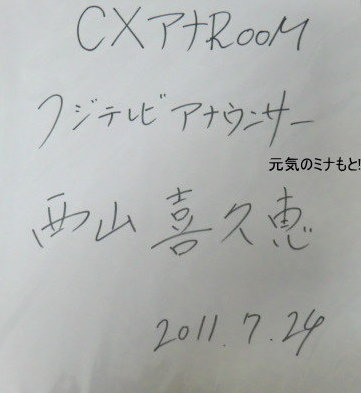 CXアナRooM
フジテレビアナウンサー
元気のミナもと!
西山喜久恵
2011.7.24